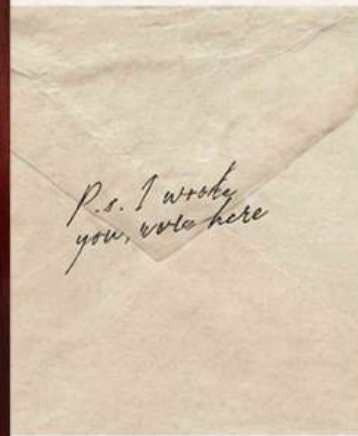 P.s. I wrote
you, wrle here